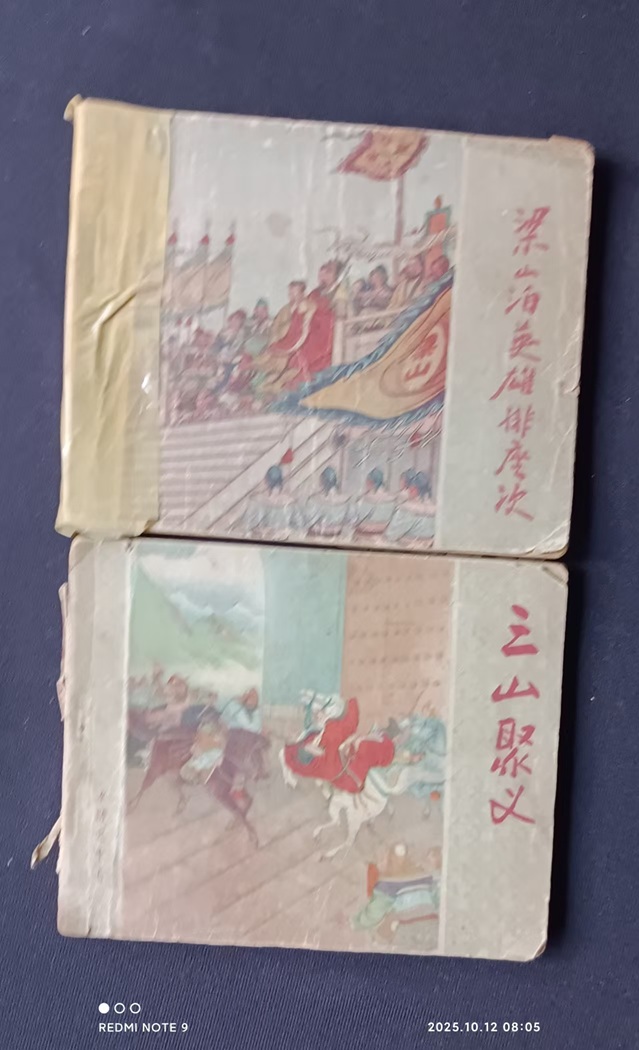 梁山泊英雄排座次
三山聚义
REDMI NOTE 9
2025.10.12 08:05